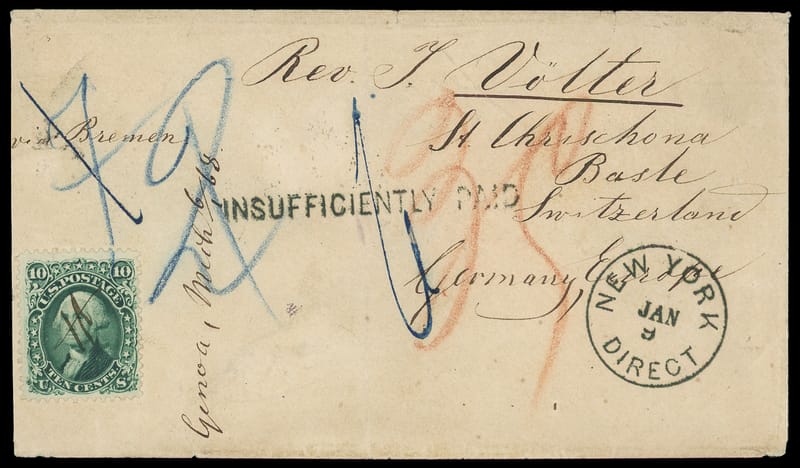 Rev. J. Völter
St Chrischona
Basle
Switzerland
Germany, Europe
via Bremen
INSUFFICIENTLY PAID
Genoa, Mich 6/68
10 10
U.S. POSTAGE
TEN CENTS.
U S
NEW YORK
JAN
9
DIRECT